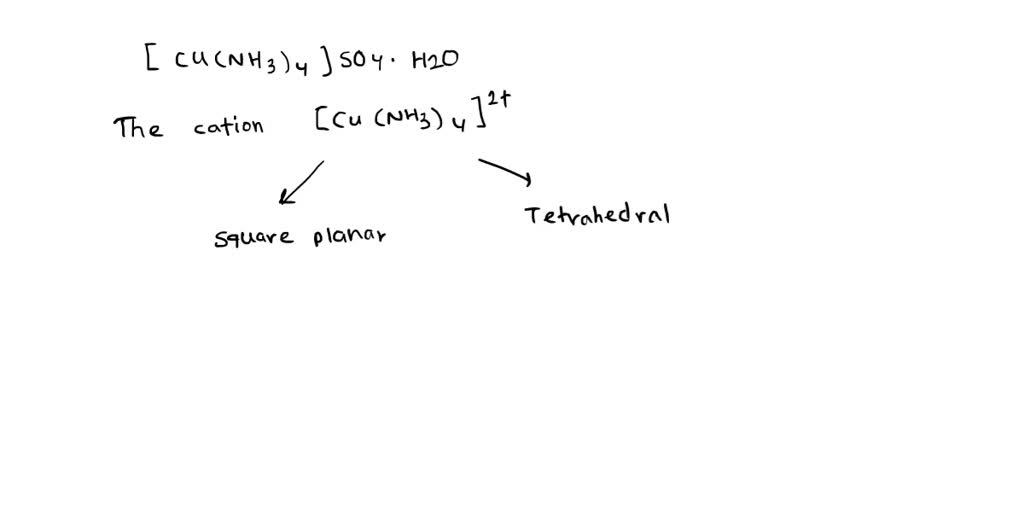 [Cu(NH3)4]SO4. H2O
The cation [Cu(NH3)4]2+
square planar
Tetrahedral